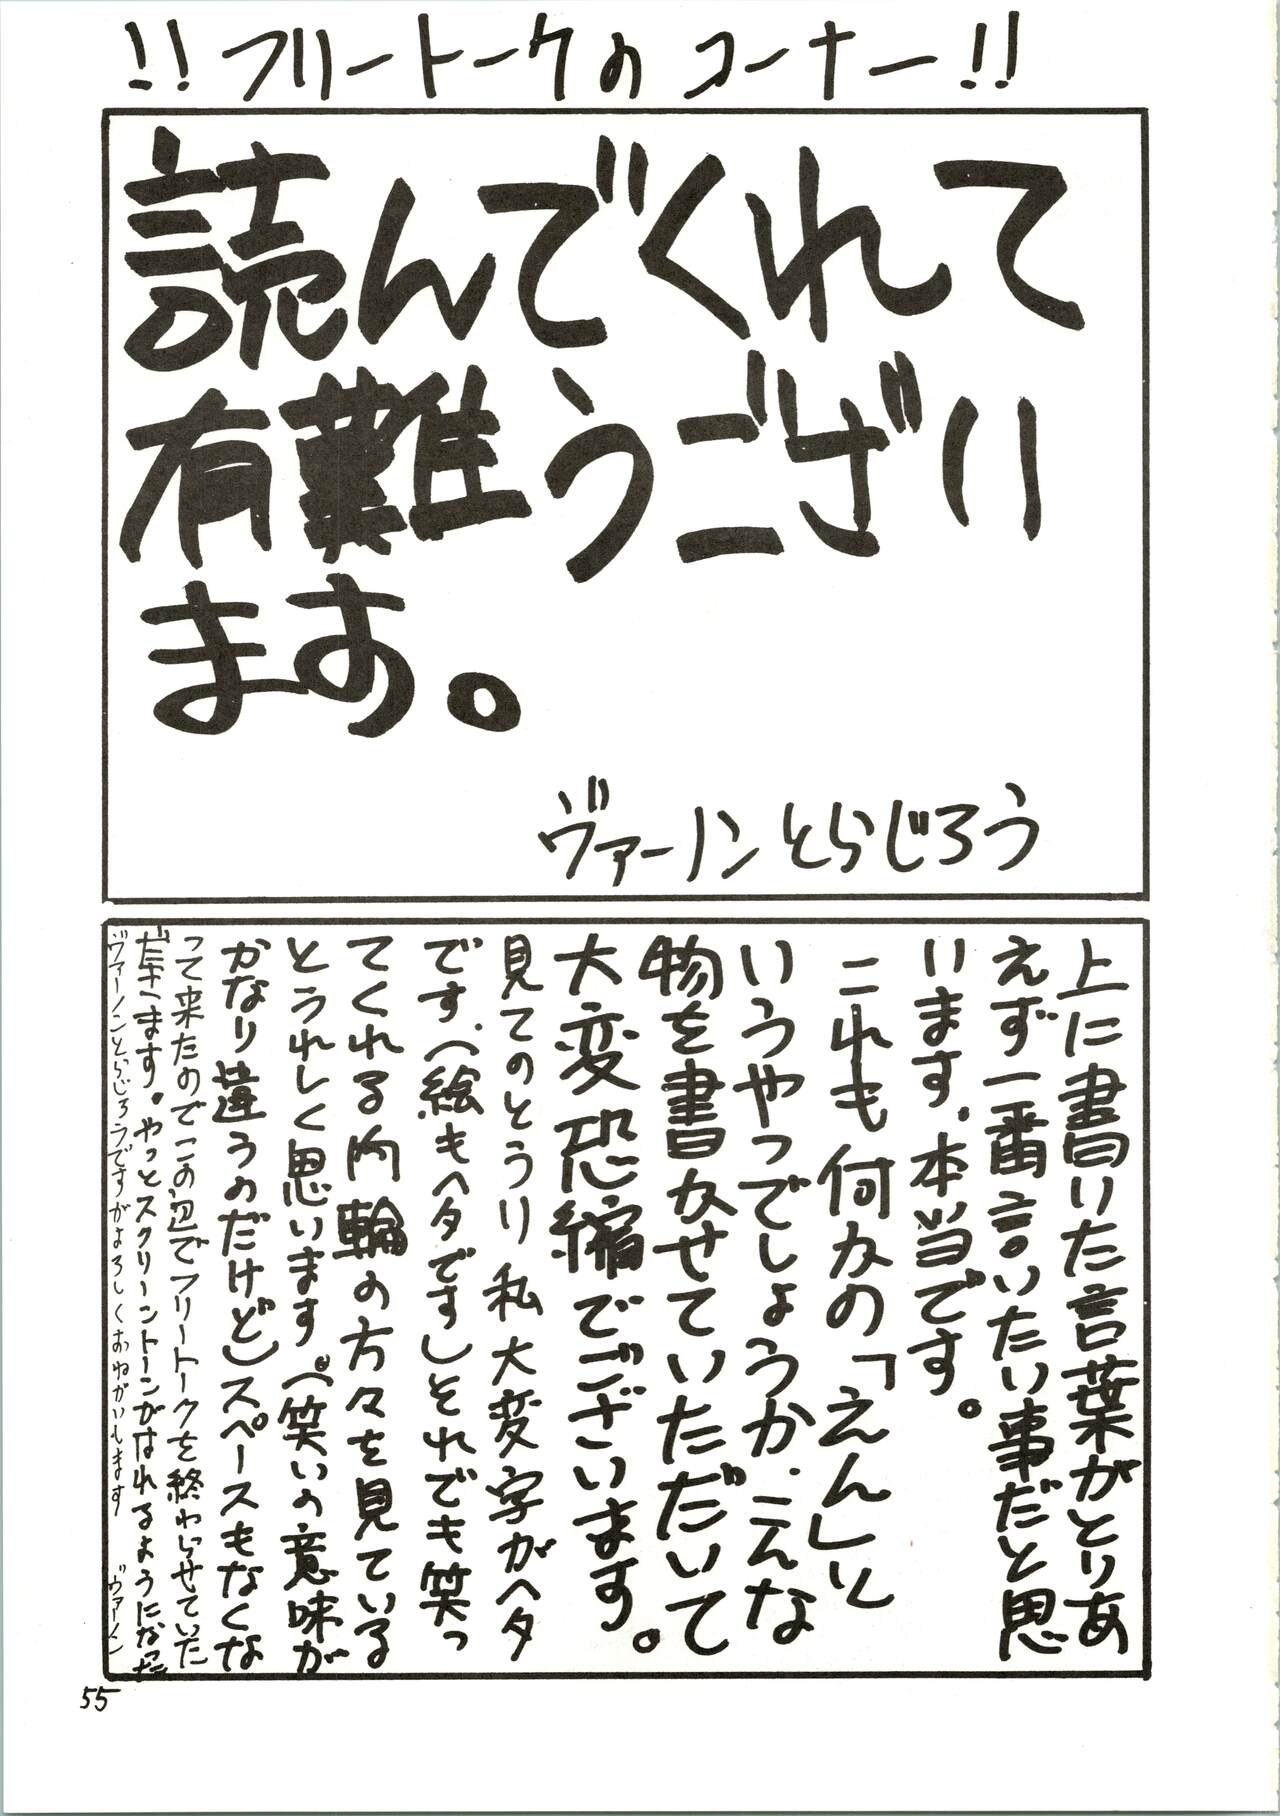 !!フリートークのコーナー!!
読んでくれて
有難うござい
ます。
ヴァーノンとらじろう
上に書いた言葉がとりあ
えず一番言いたい事だと思
います.本当です。
これも何かの「えん」と
いうやつでしょうか.こんな
物を書かせていただいて
大変恐縮でございます。
見てのとうり私大変字がヘタ
です.(絵もヘタです)それでも笑っ
てくれる内輪の方々を見ている
とうれしく思います。(笑いの意味が
かなり違うのだけど)スペースもなくな
って来たのでこの辺でフリートークを終わらせていた
だきます。やっとスクリーントーンがはれるようになった
ヴァーノンとらじろうですがよろしくおねがいします ヴァーノン
55